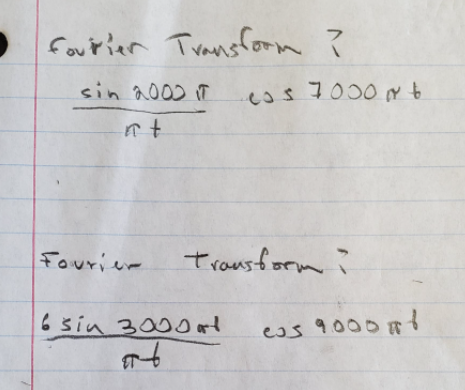 Fourier Transform ?
sin 2000 π cos 7000 π t
π t
Fourier transform ?
6 sin 3000 π t cos 9000 π t
π t